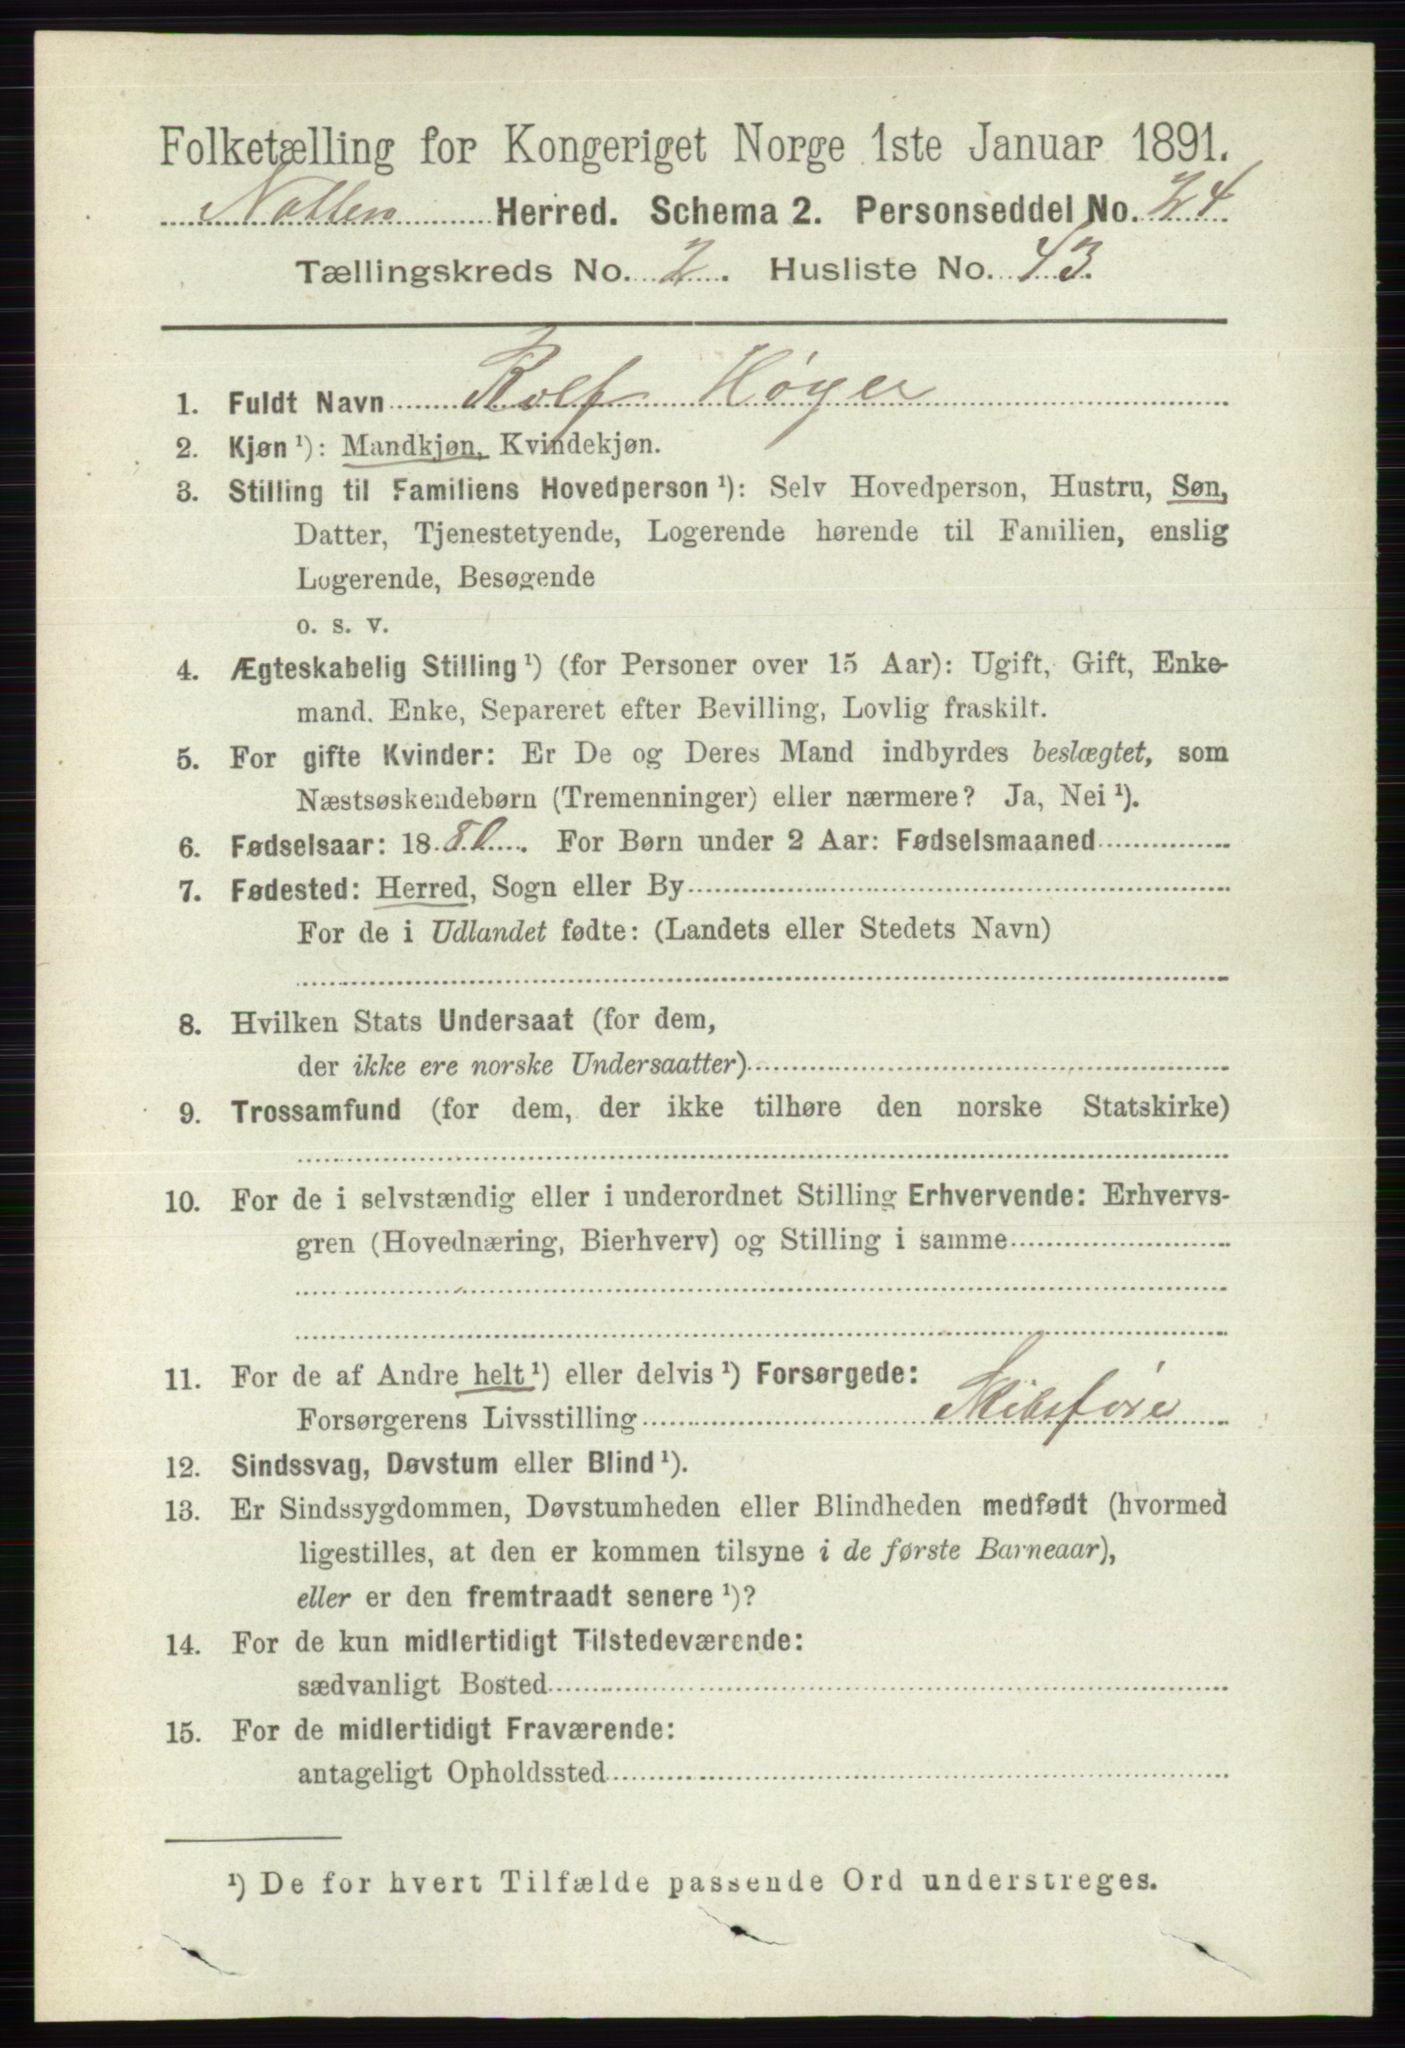 Folketælling for Kongeriget Norge 1ste Januar 1891.
Nøtterø Herred. Schema 2. Personseddel No. 24
Tællingskreds No. 2. Husliste No. 43.
1. Fuldt Navn Rolf Høyer
2. Kjøn ¹): Mandkjøn, Kvindekjøn.
3. Stilling til Familiens Hovedperson ¹): Selv Hovedperson, Hustru, Søn,
Datter, Tjenestetyende, Logerende hørende til Familien, enslig
Logerende, Besøgende
o. s. v.
4. Ægteskabelig Stilling ¹) (for Personer over 15 Aar): Ugift, Gift, Enke-
mand. Enke, Separeret efter Bevilling, Lovlig fraskilt.
5. For gifte Kvinder: Er De og Deres Mand indbyrdes beslægtet, som
Næstsøskendebørn (Tremenninger) eller nærmere? Ja, Nei ¹).
6. Fødselsaar: 1880. For Børn under 2 Aar: Fødselsmaaned
7. Fødested: Herred, Sogn eller By
For de i Udlandet fødte: (Landets eller Stedets Navn)
8. Hvilken Stats Undersaat (for dem,
der ikke ere norske Undersaatter)
9. Trossamfund (for dem, der ikke tilhøre den norske Statskirke)
10. For de i selvstændig eller i underordnet Stilling Erhvervende: Erhvervs-
gren (Hovednæring, Bierhverv) og Stilling i samme
11. For de af Andre helt ¹) eller delvis ¹) Forsørgede:
Forsørgerens Livsstilling Skibsfører
12. Sindssvag, Døvstum eller Blind ¹).
13. Er Sindssygdommen, Døvstumheden eller Blindheden medfødt (hvormed
ligestilles, at den er kommen tilsyne i de første Barneaar),
eller er den fremtraadt senere ¹)?
14. For de kun midlertidigt Tilstedeværende:
sædvanligt Bosted
15. For de midlertidigt Fraværende:
antageligt Opholdssted
¹) De for hvert Tilfælde passende Ord understreges.